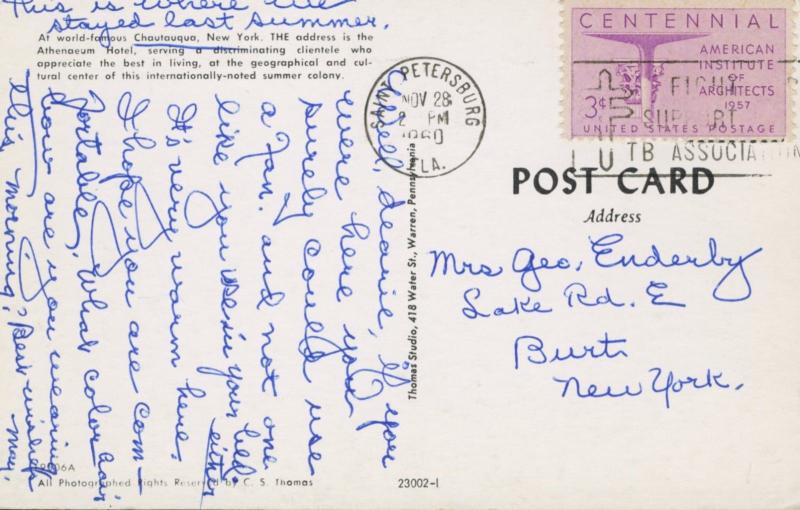 This is where we
stayed last summer.
At world-famous Chautauqua, New York. THE address is the
Athenaeum Hotel, serving a discriminating clientele who
appreciate the best in living, at the geographical and cul-
tural center of this internationally-noted summer colony.
Well, dearie, if you
were here you
surely could use
a fan. and not one
like you use in your hell
either
It's very warm here.
I hope you are com-
fortable. What color hair
are you wearing
this morning? Best wishes
May.
All Photographed Rights Reserved by C. S. Thomas
23002-1
Thomas Studio, 418 Water St., Warren, Pennsylvania
SAINT PETERSBURG
NOV 28
2 PM
1960
FLA.
CENTENNIAL
AMERICAN
INSTITUTE
OF
ARCHITECTS
1957
3¢
UNITED STATES POSTAGE
FIGHT
SUPPORT
TB ASSOCIATION
POST CARD
Address
Mrs Geo. Enderby
Lake Rd. E
Burt
New York.